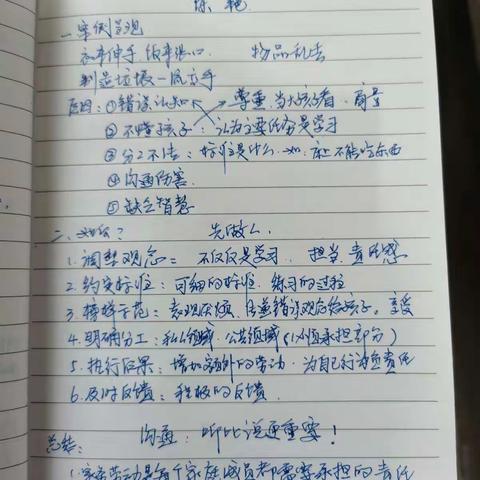 陈艳
一、案例呈现
衣来伸手、饭来张口 物品乱丢
制造垃圾一风高手
原因：①错误认知 尊重、当大孩子看、商量
②不懂孩子：认为主要任务是学习
③分工不清：标准是什么，如：床上不能吃东西
④沟通伤害
⑤缺乏智慧
二、如何？ 先做人
1.调整观念：不仅仅是学习、担当、责任感
2.约定标准：可细的标准、练习的过程
3.榜样示范：表现厌烦，传递错误观念给孩子。享受
4.明确分工：私人领域、公共领域（小值承担部分）
5.执行后果：增加额外的劳动、为自己行为负责任
6.及时反馈：积极的反馈
沟通：听比说更重要！
总结：
1.家务劳动是每个家庭成员都需要承担的责任